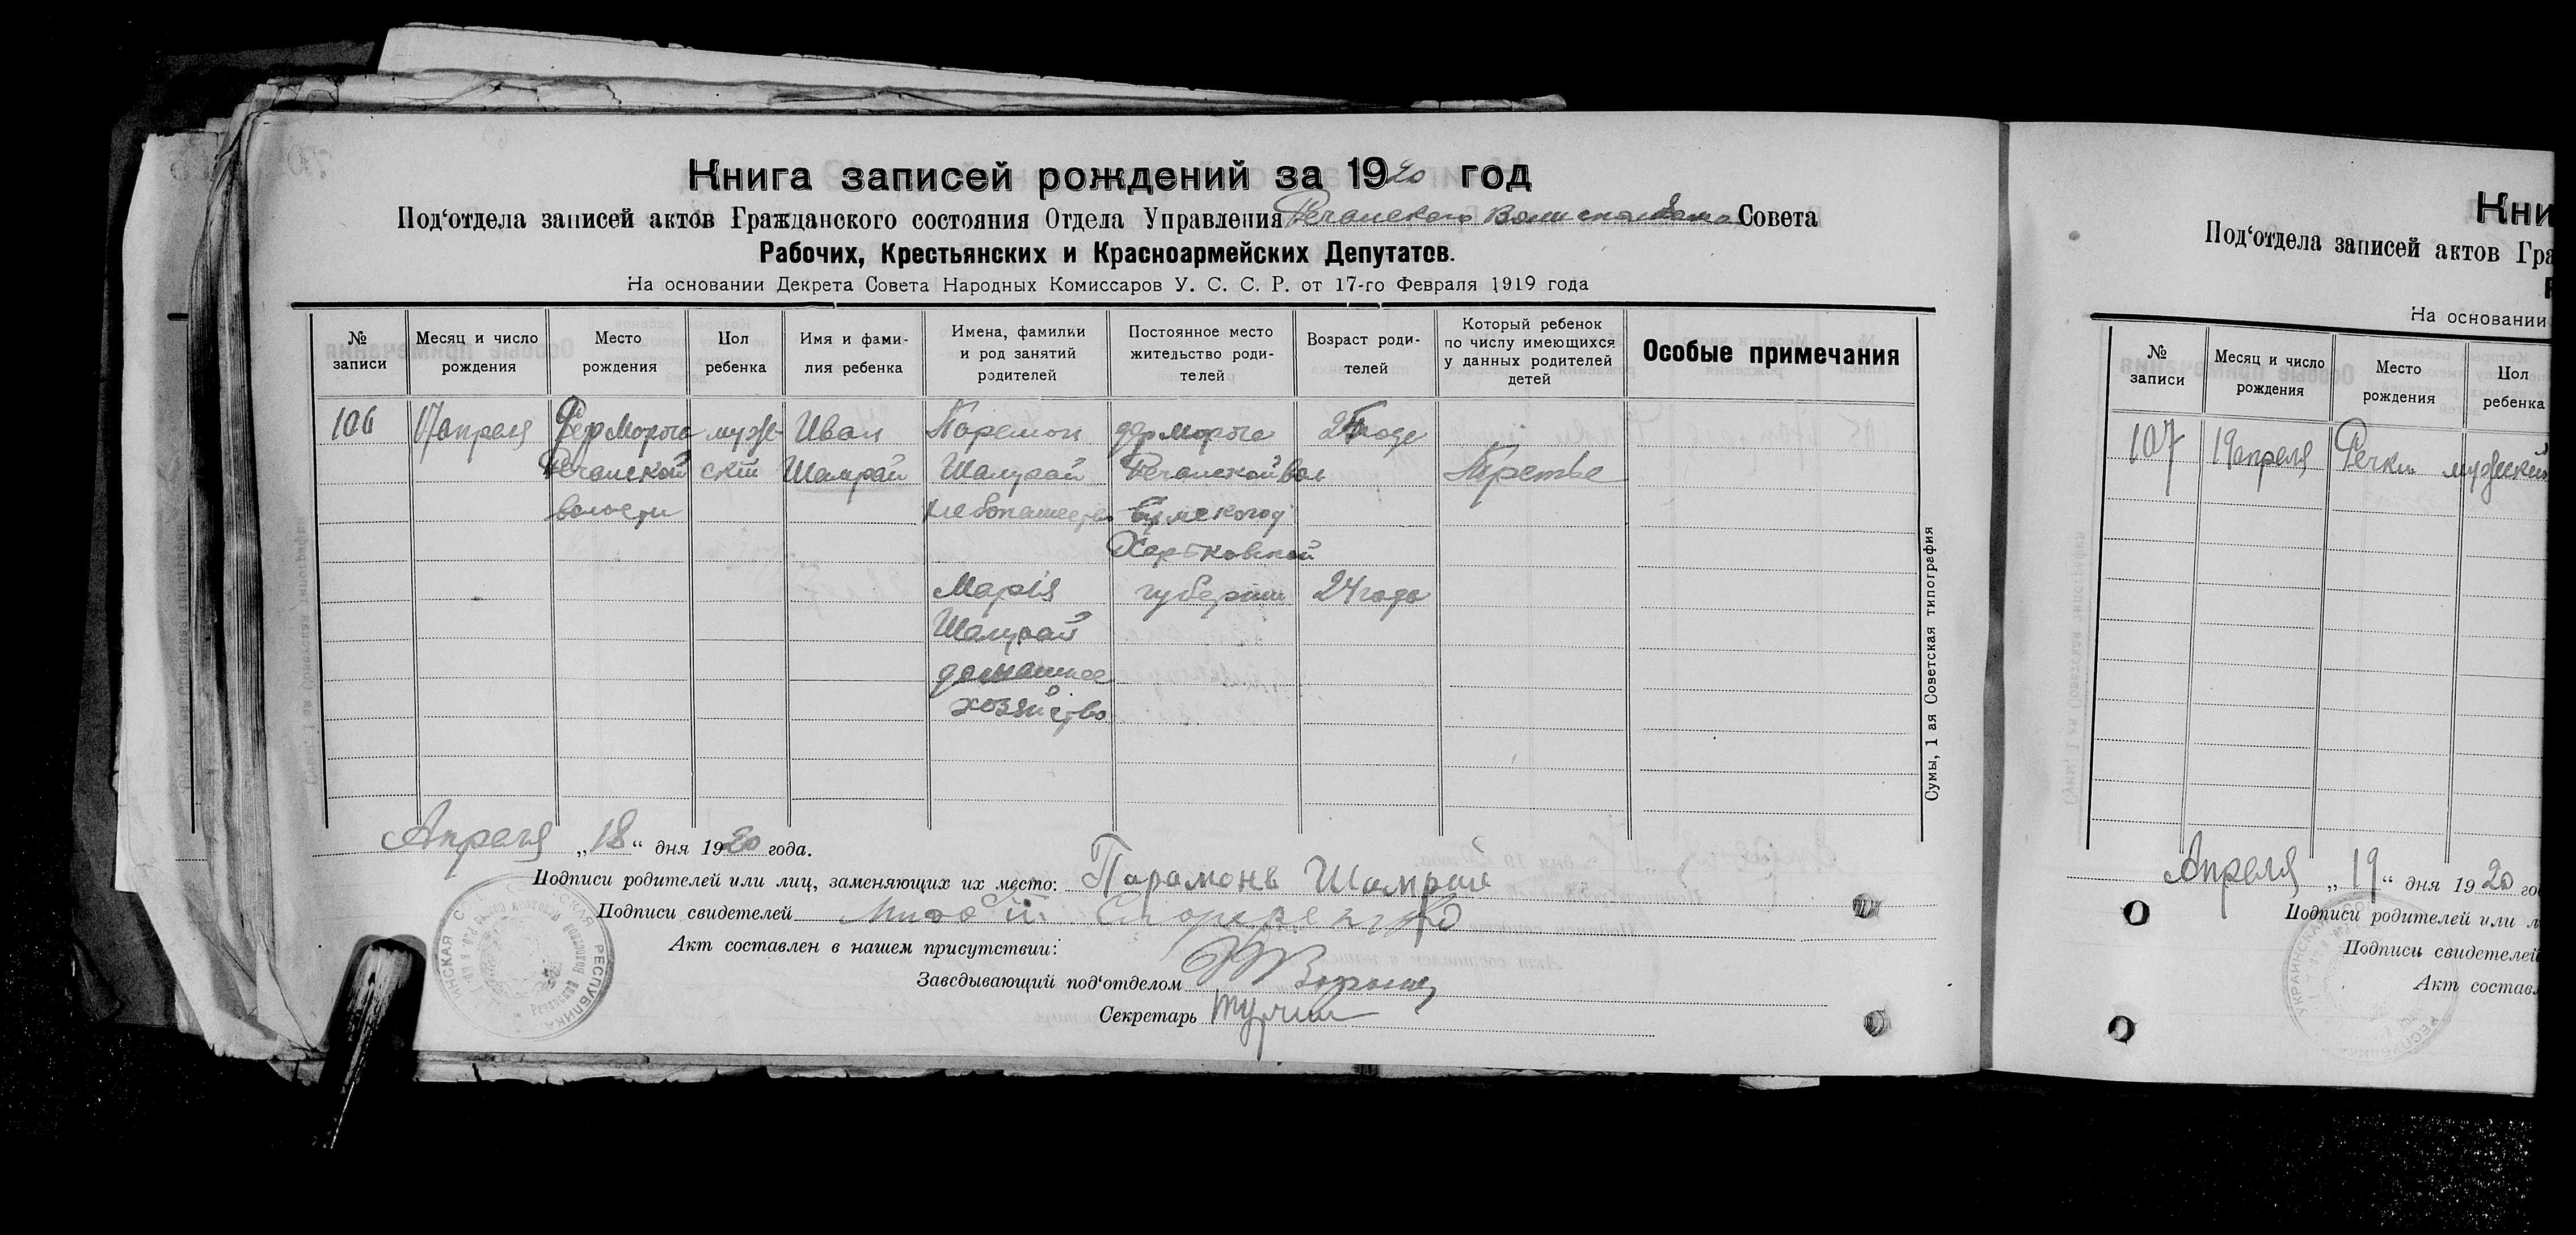 Книга записей рождений за 1920 год
Под‘отдела записей актов Гражданского состояния Отдела Управления Речанского Совета
Рабочих, Крестьянских и Красноармейских Депутатов.
На основании Декрета Совета Народных Комиссаров У. С. С. Р. от 17-го Февраля 1919 года
№ записи
Месяц и число рождения
Место рождения
Пол ребенка
Имя и фами-
лия ребенка
Имена, фамилии
и род занятий
родителей
Постоянное место
жительство роди-
телей
Возраст роди-
телей
Который ребенок
по числу имеющихся
у данных родителей
детей
Особые примечания
106
17 апреля
Речанской
волости
мужс-
скій
Иван
Шамрай
Парамон
Шамрай
хлебопашество
Марія
Шамрай
домашнее
хозяйство
Речанской вол
Харьковской
губернии
24 года
Третье
Сумы, 1 ая Советская типография
Апреля „18“ дня 1920 года.
Подписи родителей или лиц, заменяющих их место: Парамонъ Шамрай
Подписи свидетелей
Акт составлен в нашем присутствии:
Заведывающий под‘отделом
Секретарь
РЕСПУБЛИКА
Кни
Под‘отдела записей актов Гра
На основании
№
записи
Месяц и число
рождения
Место
рождения
Пол
ребенка
107
19 апреля
Речки
мужский
Апреля „19“ дня 1920 го
Подписи родителей или л
Подписи свидетелей
Акт состав
УКРАИНСКАЯ
РЕСПУБЛИКА